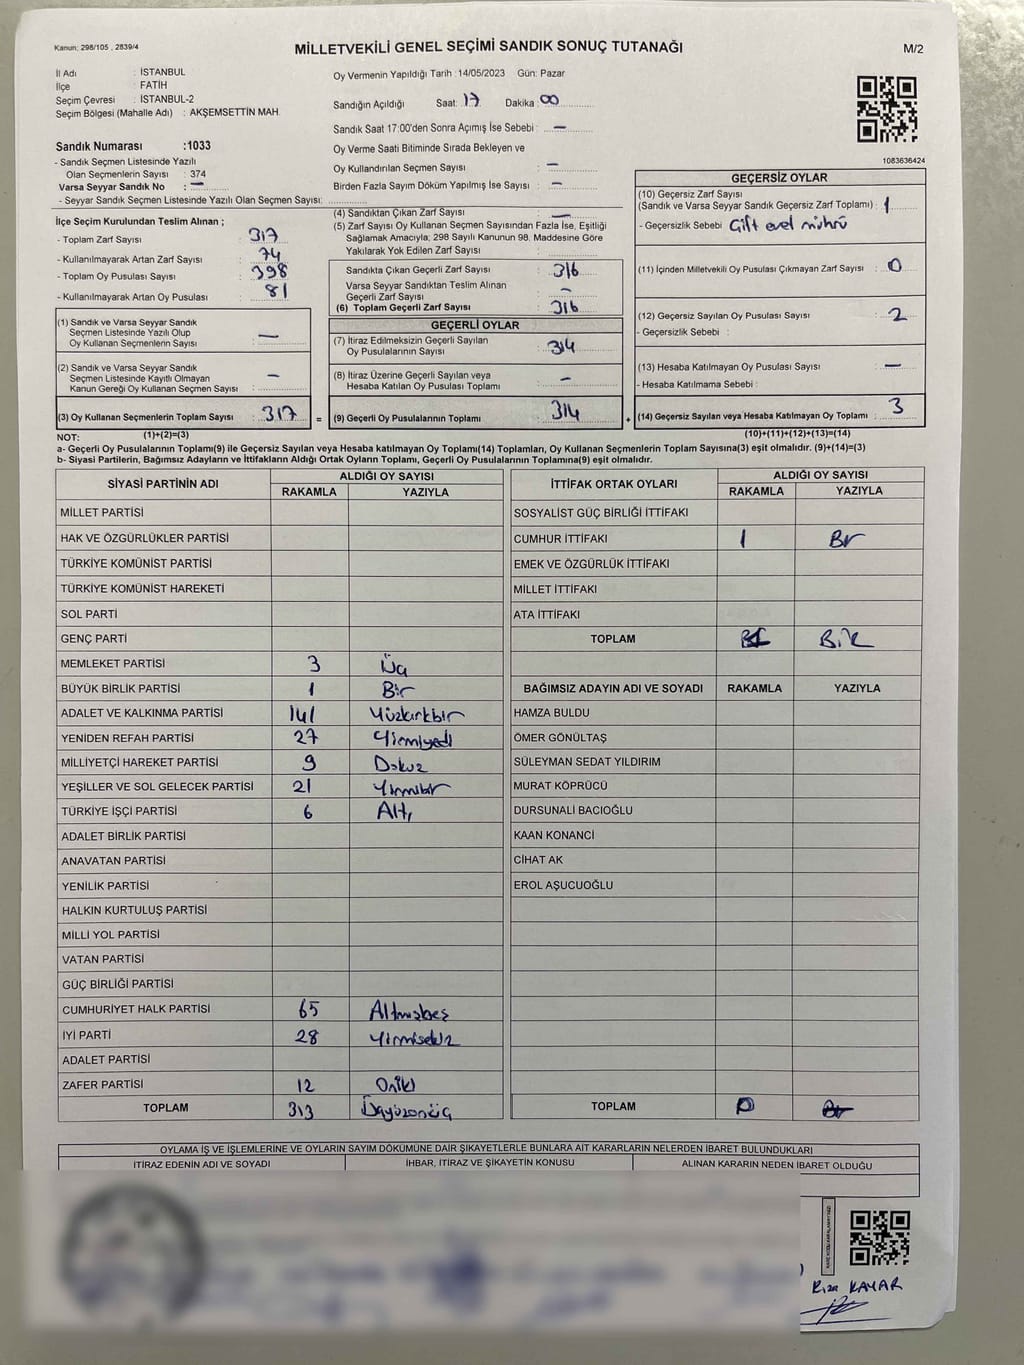 Kanun: 298/105 , 2839/4
MİLLETVEKİLİ GENEL SEÇİMİ SANDIK SONUÇ TUTANAĞI
M/2
İl Adı : İSTANBUL
İlçe : FATİH
Seçim Çevresi : İSTANBUL-2
Seçim Bölgesi (Mahalle Adı) : AKŞEMSETTİN MAH.
Sandık Numarası :1033
- Sandık Seçmen Listesinde Yazılı
Olan Seçmenlerin Sayısı : 374
Varsa Seyyar Sandık No : —
- Seyyar Sandık Seçmen Listesinde Yazılı Olan Seçmen Sayısı:
Oy Vermenin Yapıldığı Tarih :14/05/2023 Gün: Pazar
Sandığın Açıldığı Saat: 17 Dakika : 00
Sandık Saat 17:00'den Sonra Açımış İse Sebebi : —
Oy Verme Saati Bitiminde Sırada Bekleyen ve
Oy Kullandırılan Seçmen Sayısı : —
Birden Fazla Sayım Döküm Yapılmış İse Sayısı : —
1083636424
İlçe Seçim Kurulundan Teslim Alınan ;
- Toplam Zarf Sayısı : 317
- Kullanılmayarak Artan Zarf Sayısı : 74
- Toplam Oy Pusulası Sayısı : 398
- Kullanılmayarak Artan Oy Pusulası : 81
(1) Sandık ve Varsa Seyyar Sandık
Seçmen Listesinde Yazılı Olup
Oy Kullanan Seçmenlerin Sayısı : —
(2) Sandık ve Varsa Seyyar Sandık
Seçmen Listesinde Kayıtlı Olmayan
Kanun Gereği Oy Kullanan Seçmen Sayısı : —
(3) Oy Kullanan Seçmenlerin Toplam Sayısı : 317 =
(4) Sandıktan Çıkan Zarf Sayısı : —
(5) Zarf Sayısı Oy Kullanan Seçmen Sayısından Fazla İse, Eşitliği
Sağlamak Amacıyla; 298 Sayılı Kanunun 98. Maddesine Göre
Yakılarak Yok Edilen Zarf Sayısı :
Sandıkta Çıkan Geçerli Zarf Sayısı : 316
Varsa Seyyar Sandıktan Teslim Alınan
Geçerli Zarf Sayısı : —
(6) Toplam Geçerli Zarf Sayısı : 316
GEÇERLİ OYLAR
(7) İtiraz Edilmeksizin Geçerli Sayılan
Oy Pusulalarının Sayısı : 314
(8) İtiraz Üzerine Geçerli Sayılan veya
Hesaba Katılan Oy Pusulası Toplamı : —
(9) Geçerli Oy Pusulalarının Toplamı : 314 +
GEÇERSİZ OYLAR
(10) Geçersiz Zarf Sayısı
(Sandık ve Varsa Seyyar Sandık Geçersiz Zarf Toplamı) : 1
- Geçersizlik Sebebi : Çift evet mührü
(11) İçinden Milletvekili Oy Pusulası Çıkmayan Zarf Sayısı : 0
(12) Geçersiz Sayılan Oy Pusulası Sayısı : 2
- Geçersizlik Sebebi :
(13) Hesaba Katılmayan Oy Pusulası Sayısı : —
- Hesaba Katılmama Sebebi :
(14) Geçersiz Sayılan veya Hesaba Katılmayan Oy Toplamı : 3
NOT: (1)+(2)=(3) (10)+(11)+(12)+(13)=(14)
a- Geçerli Oy Pusulalarının Toplamı(9) ile Geçersiz Sayılan veya Hesaba katılmayan Oy Toplamı(14) Toplamları, Oy Kullanan Seçmenlerin Toplam Sayısına(3) eşit olmalıdır. (9)+(14)=(3)
b- Siyasi Partilerin, Bağımsız Adayların ve İttifakların Aldığı Ortak Oyların Toplamı, Geçerli Oy Pusulalarının Toplamına(9) eşit olmalıdır.
SİYASİ PARTİNİN ADI ALDIĞI OY SAYISI
RAKAMLA YAZIYLA
MİLLET PARTİSİ
HAK VE ÖZGÜRLÜKLER PARTİSİ
TÜRKİYE KOMÜNİST PARTİSİ
TÜRKİYE KOMÜNİST HAREKETİ
SOL PARTİ
GENÇ PARTİ
MEMLEKET PARTİSİ 3 Üç
BÜYÜK BİRLİK PARTİSİ 1 Bir
ADALET VE KALKINMA PARTİSİ 141 Yüzkırkbir
YENİDEN REFAH PARTİSİ 27 Yirmiyedi
MİLLİYETÇİ HAREKET PARTİSİ 9 Dokuz
YEŞİLLER VE SOL GELECEK PARTİSİ 21 Yirmibir
TÜRKİYE İŞÇİ PARTİSİ 6 Altı
ADALET BİRLİK PARTİSİ
ANAVATAN PARTİSİ
YENİLİK PARTİSİ
HALKIN KURTULUŞ PARTİSİ
MİLLİ YOL PARTİSİ
VATAN PARTİSİ
GÜÇ BİRLİĞİ PARTİSİ
CUMHURİYET HALK PARTİSİ 65 Altmışbeş
İYİ PARTİ 28 Yirmisekiz
ADALET PARTİSİ
ZAFER PARTİSİ 12 Oniki
TOPLAM 313 Üçyüzonüç
İTTİFAK ORTAK OYLARI ALDIĞI OY SAYISI
RAKAMLA YAZIYLA
SOSYALİST GÜÇ BİRLİĞİ İTTİFAKI
CUMHUR İTTİFAKI 1 Bir
EMEK VE ÖZGÜRLÜK İTTİFAKI
MİLLET İTTİFAKI
ATA İTTİFAKI
TOPLAM Bir
BAĞIMSIZ ADAYIN ADI VE SOYADI RAKAMLA YAZIYLA
HAMZA BULDU
ÖMER GÖNÜLTAŞ
SÜLEYMAN SEDAT YILDIRIM
MURAT KÖPRÜCÜ
DURSUNALİ BACIOĞLU
KAAN KONANCİ
CİHAT AK
EROL AŞUCUOĞLU
TOPLAM 0
OYLAMA İŞ VE İŞLEMLERİNE VE OYLARIN SAYIM DÖKÜMÜNE DAİR ŞİKAYETLERLE BUNLARA AİT KARARLARIN NELERDEN İBARET BULUNDUKLARI
İTİRAZ EDENİN ADI VE SOYADI İHBAR, İTİRAZ VE ŞİKAYETİN KONUSU ALINAN KARARIN NEDEN İBARET OLDUĞU
Rıza KAYAR